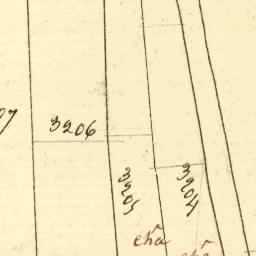 07
3206
3205
3204
cha
cha